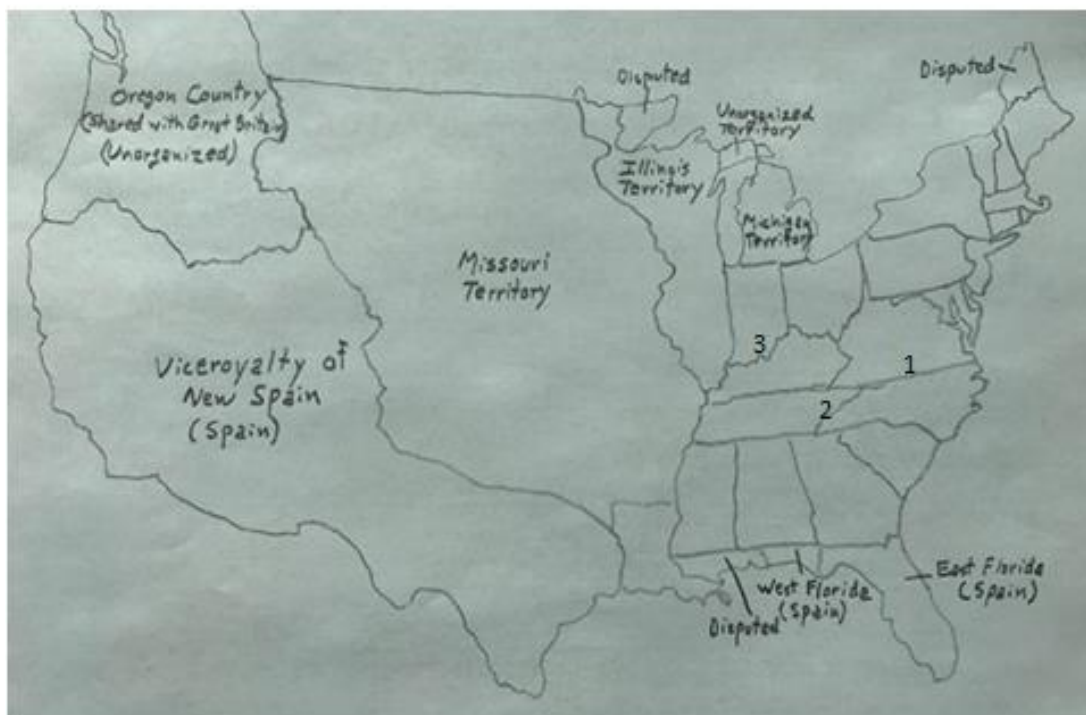 Disputed
Disputed
Oregon Country
(Shared with Great Britain)
(Unorganized)
Unorganized
Territory
Illinois
Territory
Michigan
Territory
Missouri
Territory
3
1
Viceroyalty of
New Spain
(Spain)
2
East Florida
(Spain)
West Florida
(Spain)
Disputed